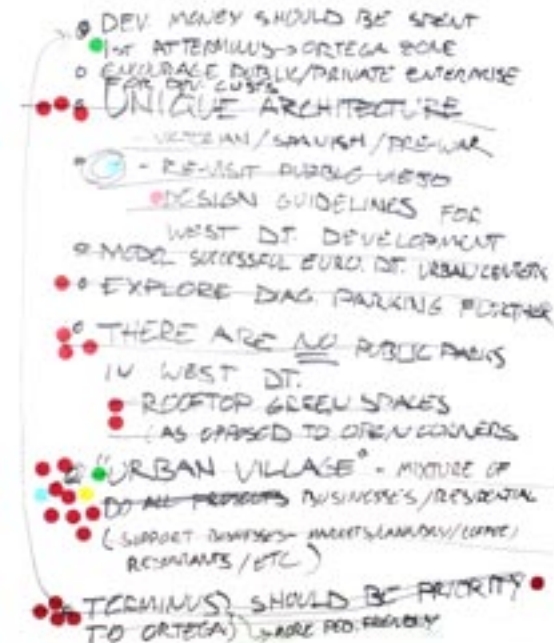 DEV. MONEY SHOULD BE SPENT
1ST AT TERMINUS → ORTEGA ZONE
ENCOURAGE PUBLIC/PRIVATE ENTERPRISE
FOR DEV.
UNIQUE ARCHITECTURE
- VICTORIAN/SPANISH/PRE-WAR
- RE-VISIT PUEBLO VIEJO
DESIGN GUIDELINES FOR
WEST DT. DEVELOPMENT
MODEL SUCCESSFUL EURO. DT. URBAN CENTERS
EXPLORE DIAG. PARKING FURTHER
THERE ARE NO PUBLIC PARKS
IN WEST DT.
ROOFTOP GREEN SPACES
(AS OPPOSED TO OPEN CORNERS
"URBAN VILLAGE" - MIXTURE OF
DO ALL PROJECTS BUSINESSES/RESIDENTIAL
(SUPPORT BUSINESSES - MARKETS/LAUNDRY/COFFEE/
RESTAURANTS/ETC)
TERMINUS) SHOULD BE PRIORITY
TO ORTEGA) → MORE PED. FRIENDLY